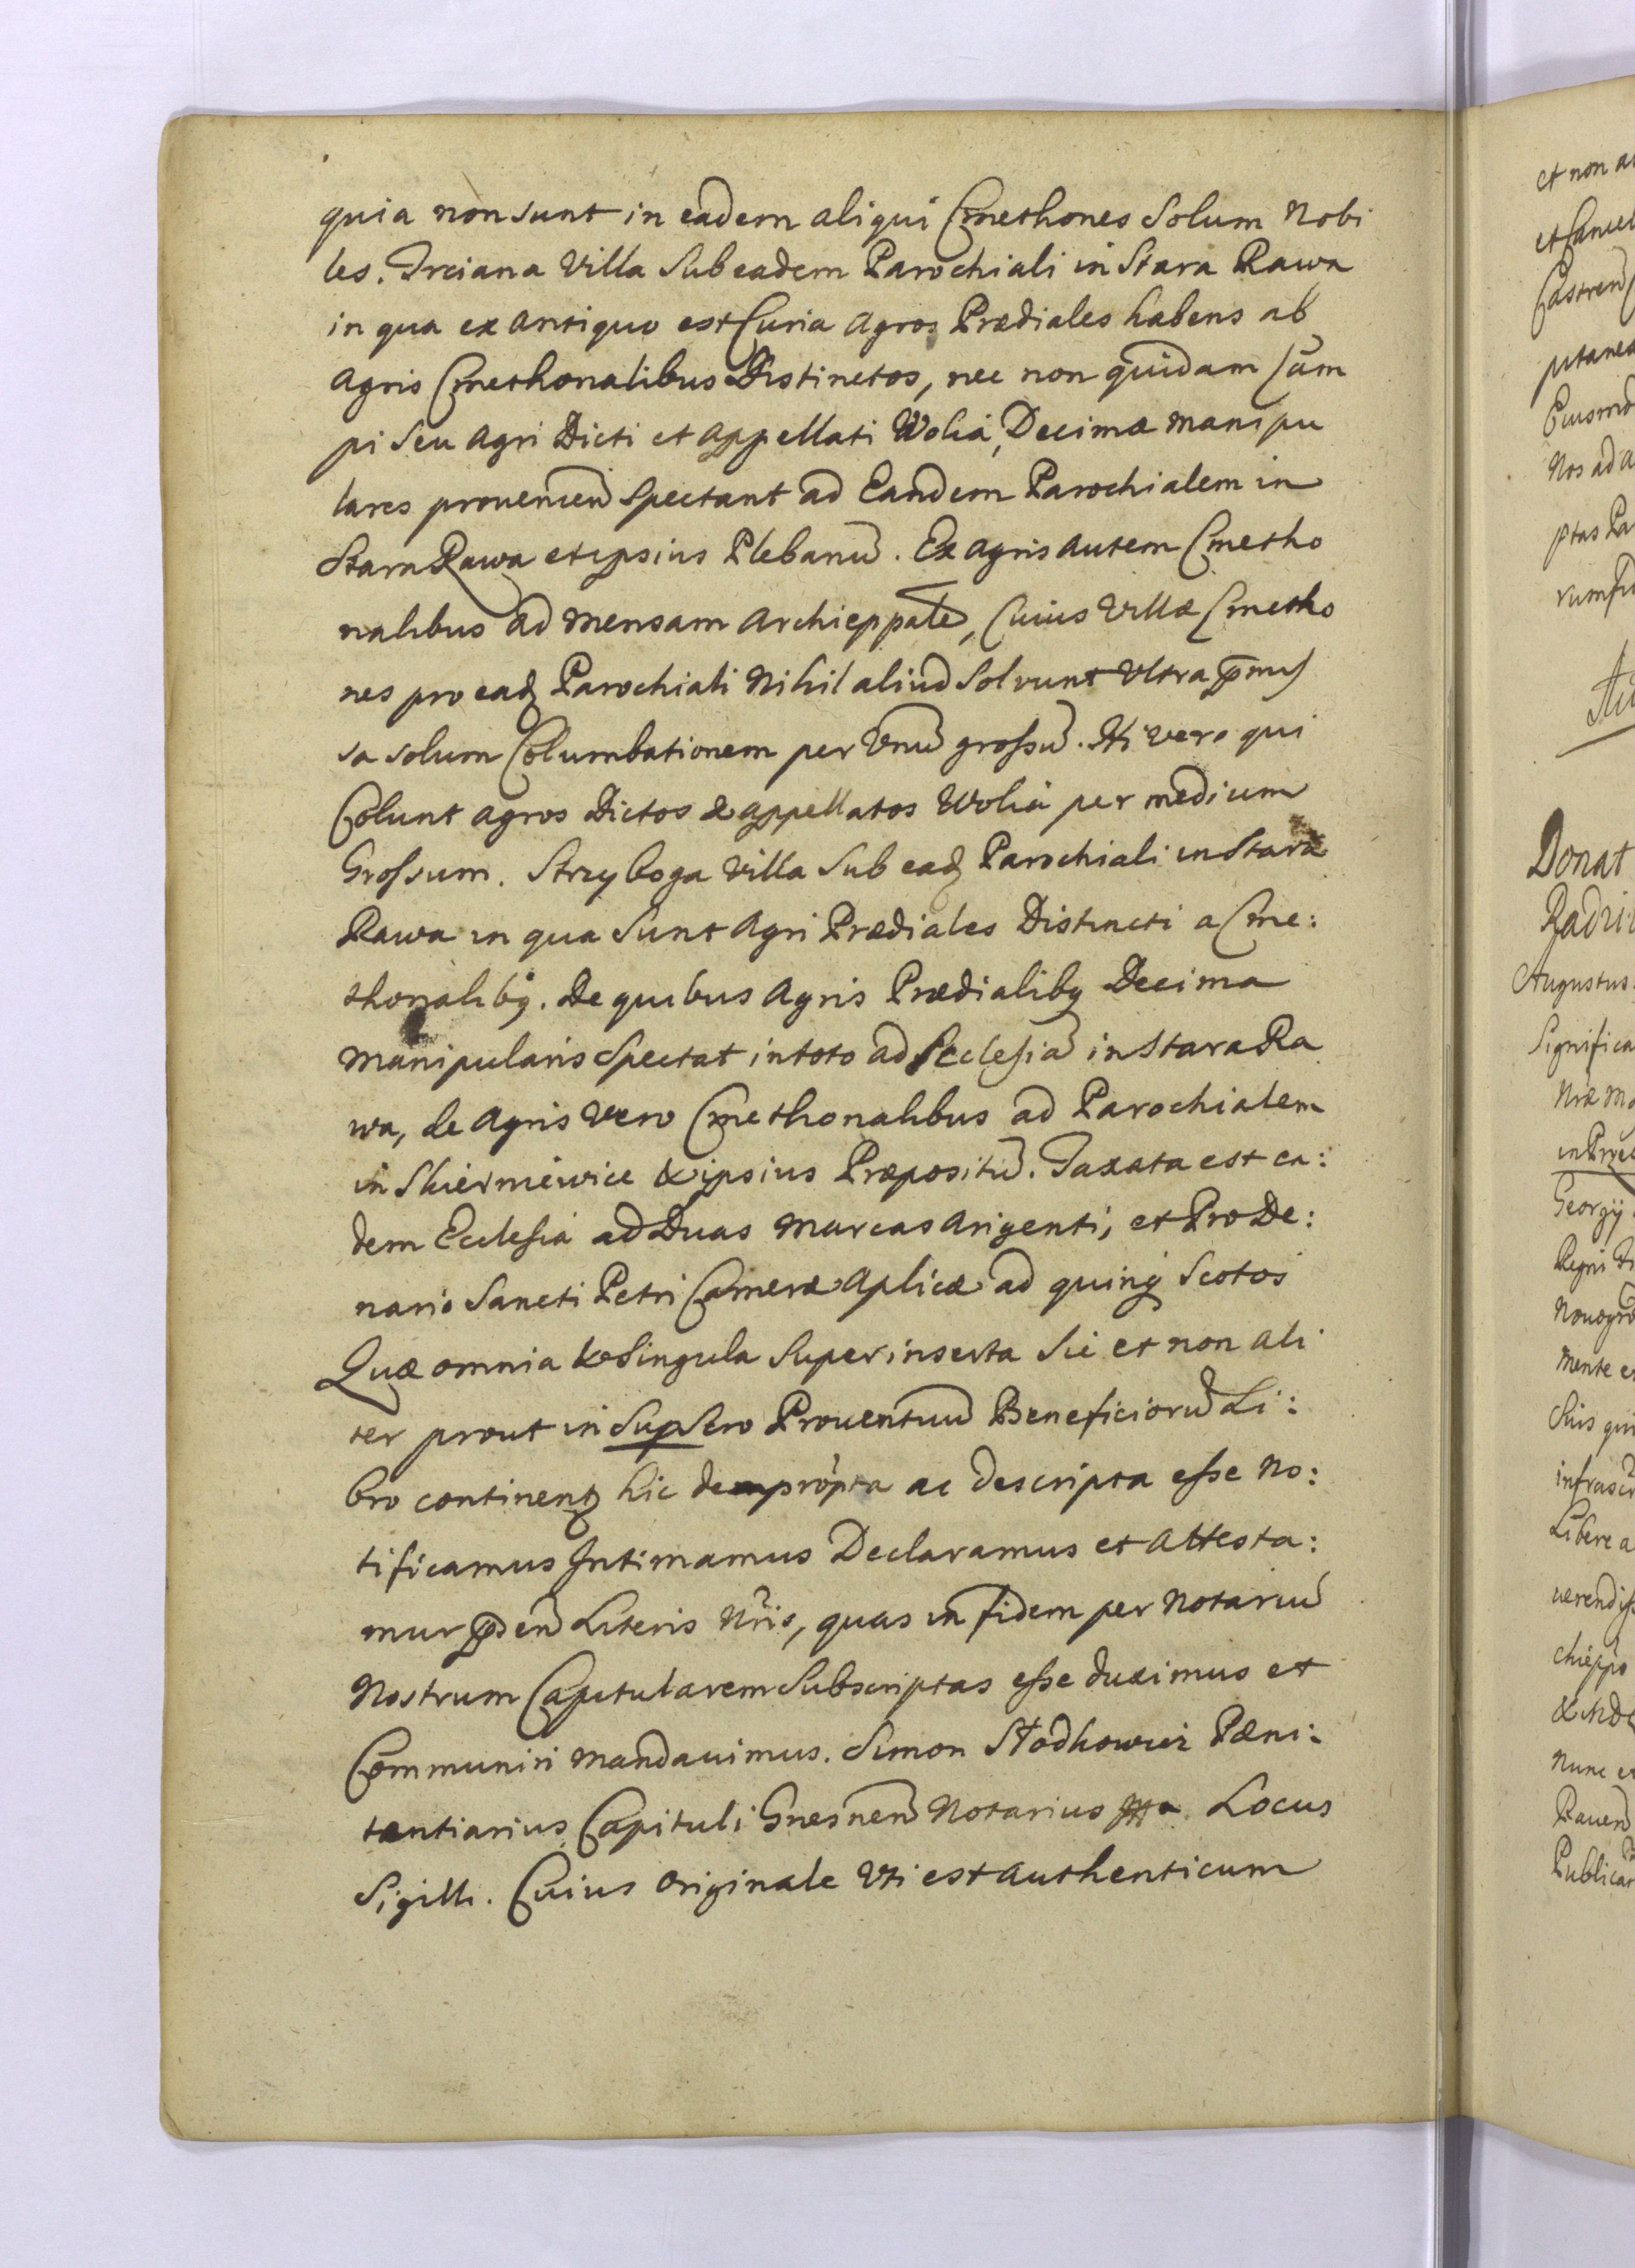 quia non sunt in eadem aliqui Cmethones Solum Nobi
les. Trciana Villa Sub eadem Parochiali in Stara Rawa
in qua ex Antiquo est Curia Agros Prædiales habens ab
Agris Cmethonalibus Distinctos, nec non quidam Cam
pi Seu Agri Dicti et Appellati Wolia, Decimæ manipu
lares provenien spectant ad Eandem Parochialem in
Stara Rawa et ipsius Plebanu. Ex Agris Autem Cmetho
nalibus ad Mensam Archieppale, Cuius Villæ Cmetho
nes pro ead Parochiali Nihil aliud Solvunt Ultra
sa solum Columbationem per Unu grossu. Hi vero qui
Colunt Agros Dictos & appellatos Wolia per medium
Grossum. Stryboga Villa Sub ead Parochiali in Stara
Rawa in qua Sunt Agri Prædiales Distincti a Cme:
thonalibq. De quibus Agris Prædialibq Decima
Manipularis Spectat in toto ad Ecclesia in Stara Ra
wa, de Agris Vero Cmethonalibus ad Parochialem
in Skierniewice & ipsius Præpositu. Taxata est ea:
dem Ecclesia ad Duas Marcas Argenti, et Pro De:
nario Sancti Petri Cameræ Aplicæ ad quinq Scotos
Quæ omnia & Singula Superinserta Sic et non ali
ter prout in Supscro Proventuu Beneficioru Li:
bro continent hic deprompta ac descripta esse No:
tificamus Intimamus Declaramus et Attesta:
mur Literis Nris, quas in fidem per Notariu
Nostrum Capitularem Subscriptas esse duximus et
Communiri Mandavimus. Simon Pæni:
tentiarius Capituli Gnesnen Notarius Locus
Sigilli. Cuius Originale Uti est Authenticum
et non a
Donat
Augustus
Significa
Georgij
Regni
mente
Suis qui
Libere a
Nunc e
Raven